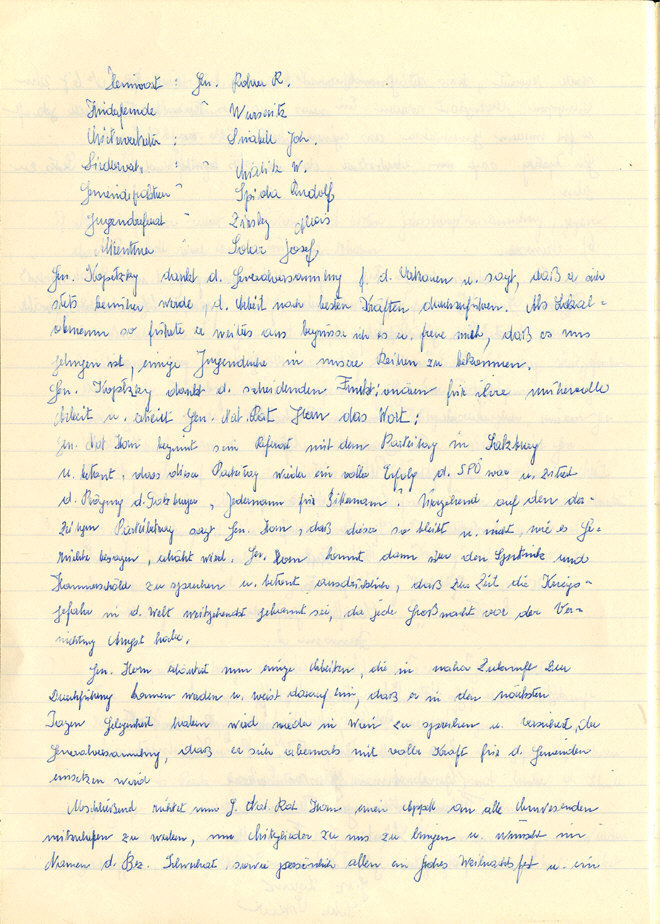 Heimwart : Gen. Rohrer R.
Kinderfreunde " Wurscnitz
Gen. Kopetzky dankt d. Generalversammlung f. d. Vertrauen u. sagt, daß er sich
stets bemühen werde d. Arbeit nach besten Kräften durchzuführen. Als Lokal-
obmann so führte er weiters aus begrüsse ich es u. freue mich, daß es uns
gelungen ist, einige Jugendliche in unsere Reihen zu bekommen.
Gen. Kopetzky dankt d. scheidenden Funktionären für ihre mühevolle
Arbeit u. erteilt Gen. Nat. Rat Horn das Wort:
Gen. Nat. Horn beginnt sein Referat mit dem Parteitag in Salzburg
u. betont, dass dieser Parteitag wieder ein voller Erfolg d. SPÖ war u. zitiert
d. Prägung d. Salzburger, "Jedermann für Pittermann". Bezugnehmend auf den der-
zeitigen Parteibeitrag sagt Gen. Horn, daß dieser so bleibt u. nicht, wie es Ge-
rüchte besagen, erhöht wird. Gen. Horn kommt dann über den Sputnik und
Hammarskjöld zu sprechen u. betont ausdrücklich, daß zur Zeit die Kriegs-
gefahr in d. Welt weitgehendst gebannt sei, da jede Großmacht vor der Ver-
nichtung Angst habe.
Gen. Horn erläutert nun einige Arbeiten, die in naher Zukunft zur
Durchführung kommen werden u. weist darauf hin, daß er in den nächsten
Tagen Gelegenheit haben wird wieder in Wien zu sprechen u. versichert, der
Generalversammlung, daß er sich abermals mit voller Kraft für d. Gemeinden
einsetzen wird
Abschließend richtet nun G. Nat. Rat Horn einen Appell an alle Anwesenden
mitzuhelfen zu werben, um Mitglieder zu uns zu bringen u. wünscht im
Namen d. Bez. Schwechat, sowie persönlich allen ein frohes Weihnachtsfest u. ein